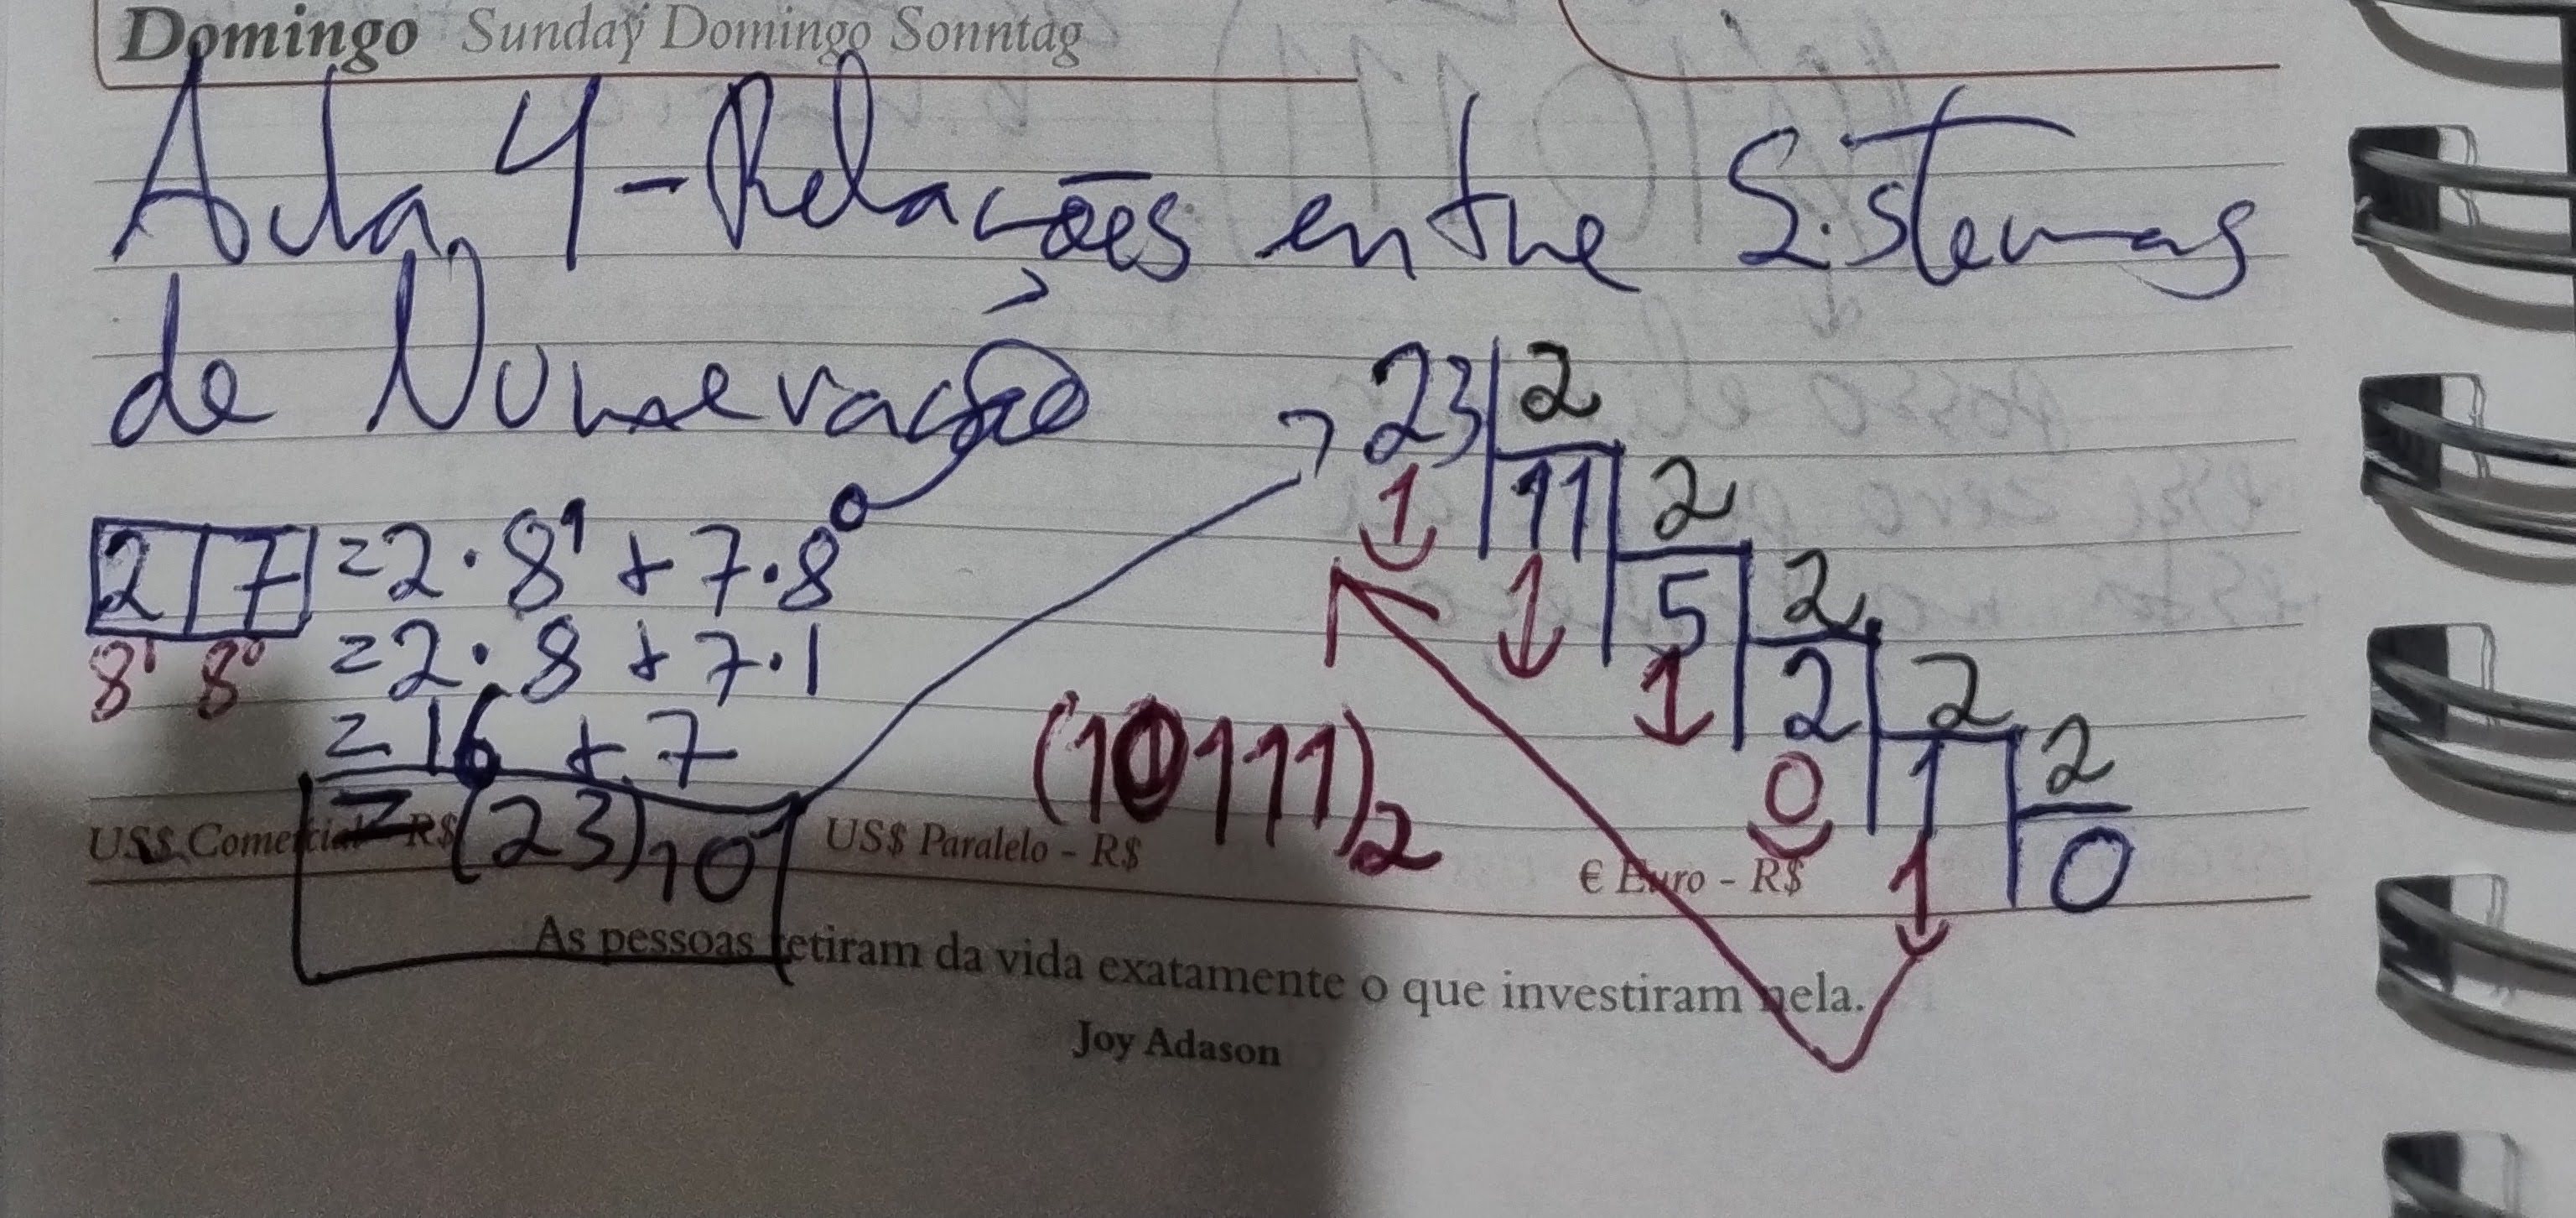 Domingo Sunday Domingo Sonntag
Aula 4 - Relações entre Sistemas
de Numeração
2 7 = 2 · 8¹ + 7 · 8⁰
8¹ 8⁰ = 2 · 8 + 7 · 1
= 16 + 7
= (23)10
23 2
1 11 2
1 5 2
1 2 2
0 1 2
1 0
(10111)2
US$ Comercial - R$ US$ Paralelo - R$ € Euro - R$
As pessoas retiram da vida exatamente o que investiram nela.
Joy Adason